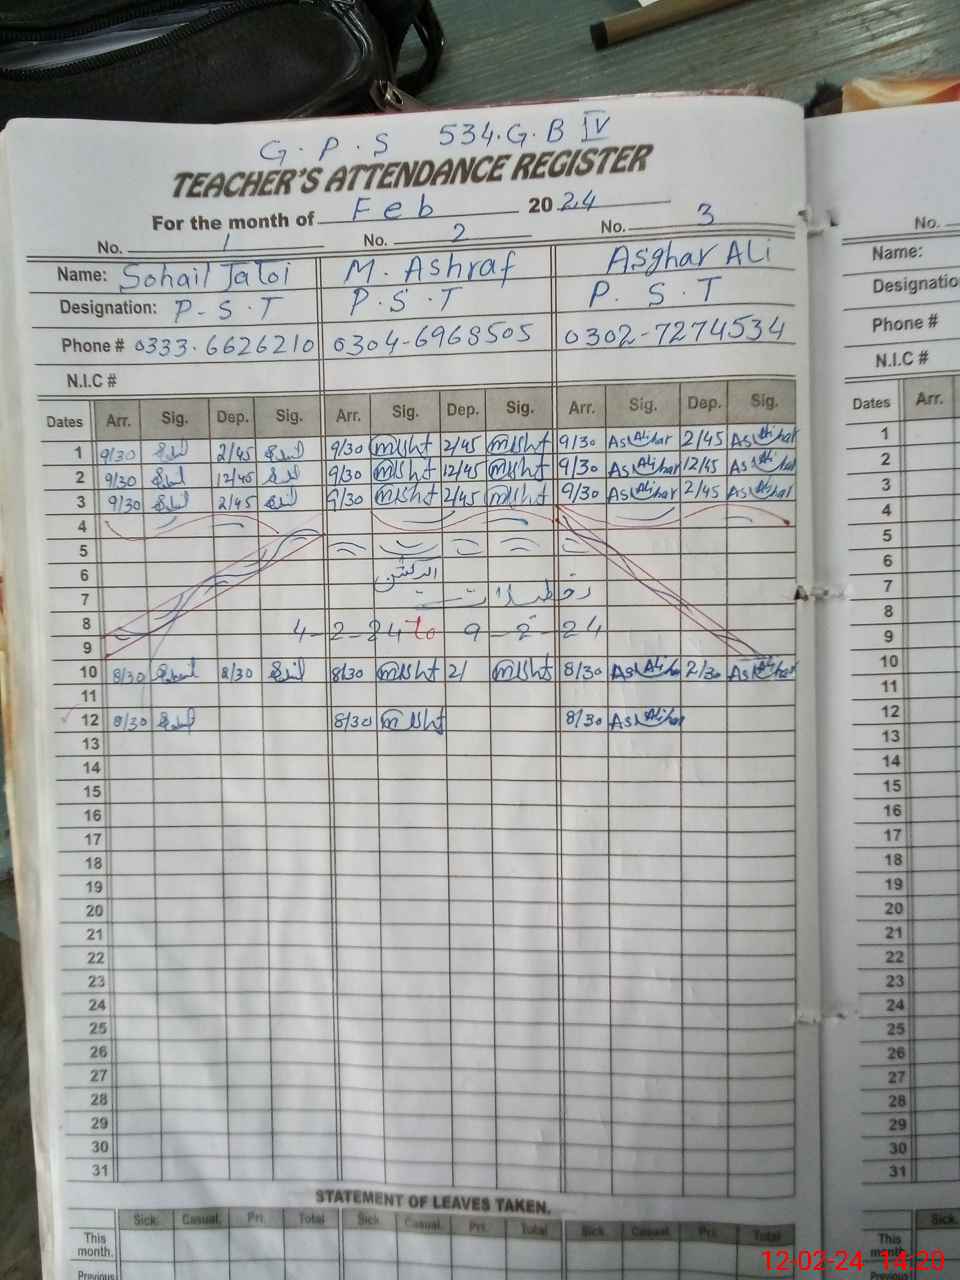 G. P. S 534. G. B IV
TEACHER'S ATTENDANCE REGISTER
For the month of Feb 2024
No. 1 No. 2 No. 3 No.
Name: Sohail Jaloi M. Ashraf Asghar Ali Name:
Designation: P-S.T P.S.T P. S.T Designatio
Phone # 0333.6626210 0304-6968505 0302-7274534 Phone #
N.I.C # N.I.C #
Dates Arr. Sig. Dep. Sig. Arr. Sig. Dep. Sig. Arr. Sig. Dep. Sig. Dates Arr.
1 9/30 2/45 9/30 2/45 9/30 2/45 1
2 9/30 12/45 9/30 12/45 9/30 12/45 2
3 9/30 2/45 9/30 2/45 9/30 2/45 3
4 4
5 5
6 الیکشن 6
7 تعطیلات 7
8 4-2-24 to 9-2-24 8
9 9
10 8/30 2/30 8/30 2/ 8/30 2/30 10
11 11
12 8/30 8/30 8/30 12
13 13
14 14
15 15
16 16
17 17
18 18
19 19
20 20
21 21
22 22
23 23
24 24
25 25
26 26
27 27
28 28
29 29
30 30
31 31
STATEMENT OF LEAVES TAKEN.
Sick. Casual. Pri. Total Sick Casual. Pri. Total Sick Casual Pri. Total Sick.
This month. This month.
Previous
12-02-24 14:20